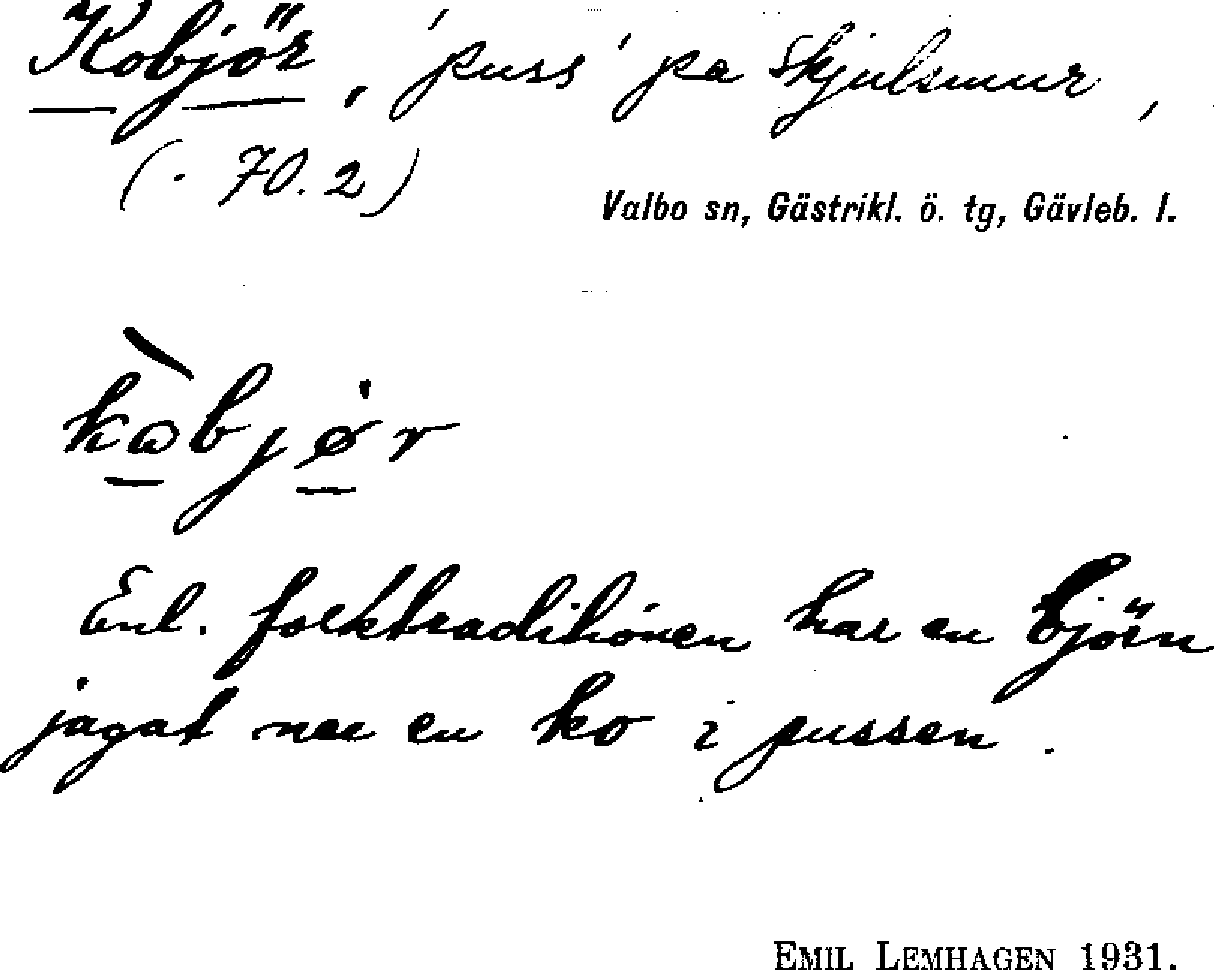 Kobjör, 'puss' pa Skjulsmur,
(. 70.2)
Valbo sn, Gästrikl. ö. tg, Gävleb. l.
kòbjør
Enl. folktraditionen har en björn
jagat ner en ko i pussen.
EMIL LEMHAGEN 1931.